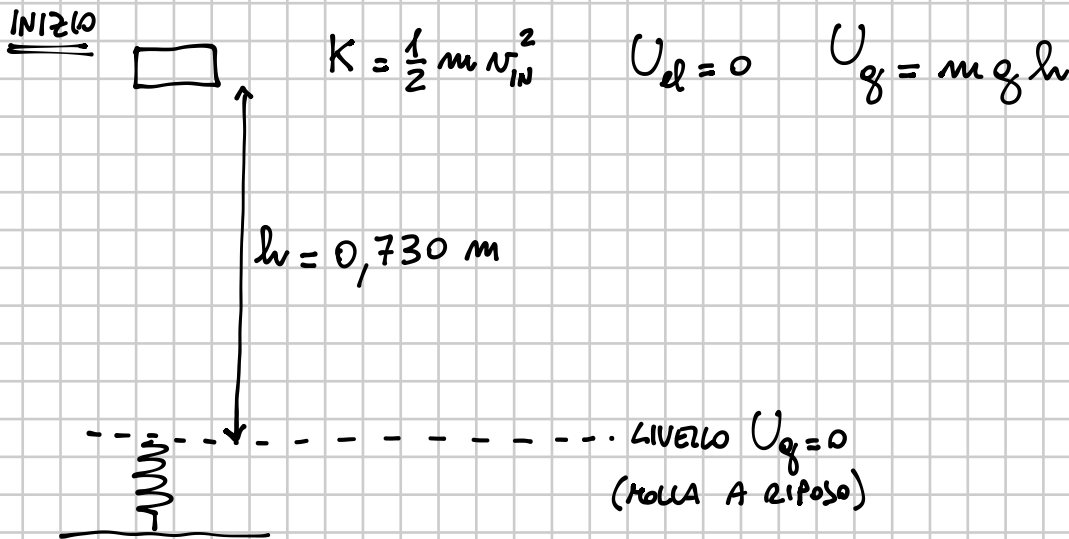 INIZIO
K = 1/2 m v_IN^2   U_el = 0   U_g = m g h
h = 0,730 m
LIVELLO U_g = 0
(MOLLA A RIPOSO)